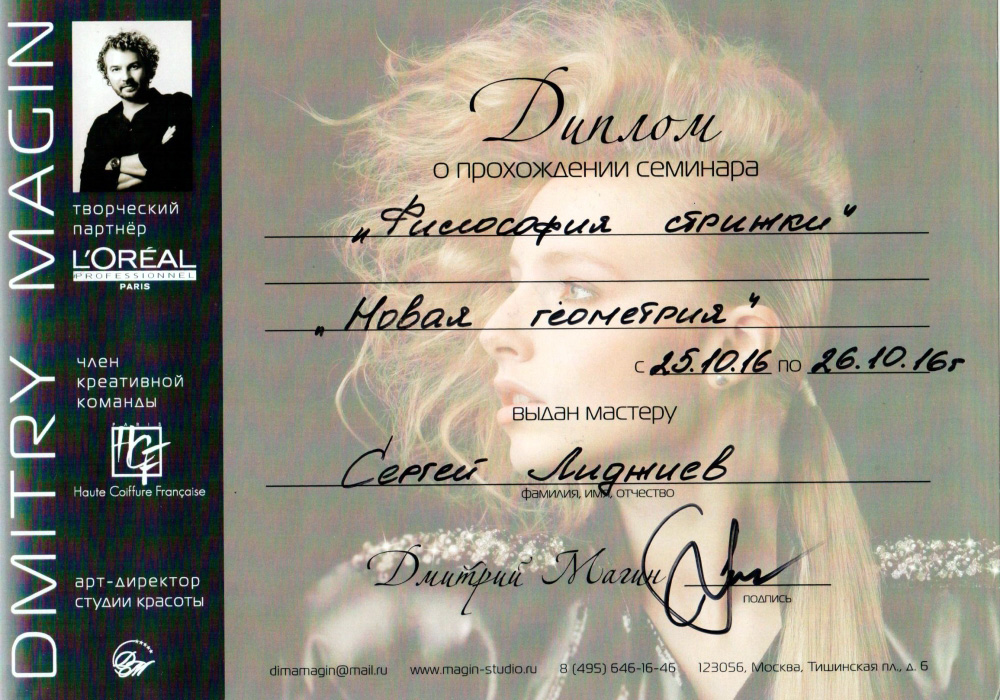 DMITRY MAGIN
творческий
партнёр
L'ORÉAL
PROFESSIONNEL
PARIS
член
креативной
команды
PARIS
HCF
Haute Coiffure Française
арт-директор
студии красоты
Диплом
о прохождении семинара
„Философия стрижки"
„Новая геометрия"
с 25.10.16 по 26.10.16г
выдан мастеру
Сергей Лиджиев
фамилия, имя, отчество
Дмитрий Магин
подпись
dimamagin@mail.ru www.magin-studio.ru 8 (495) 646-16-46 123056, Москва, Тишинская пл., д. 6